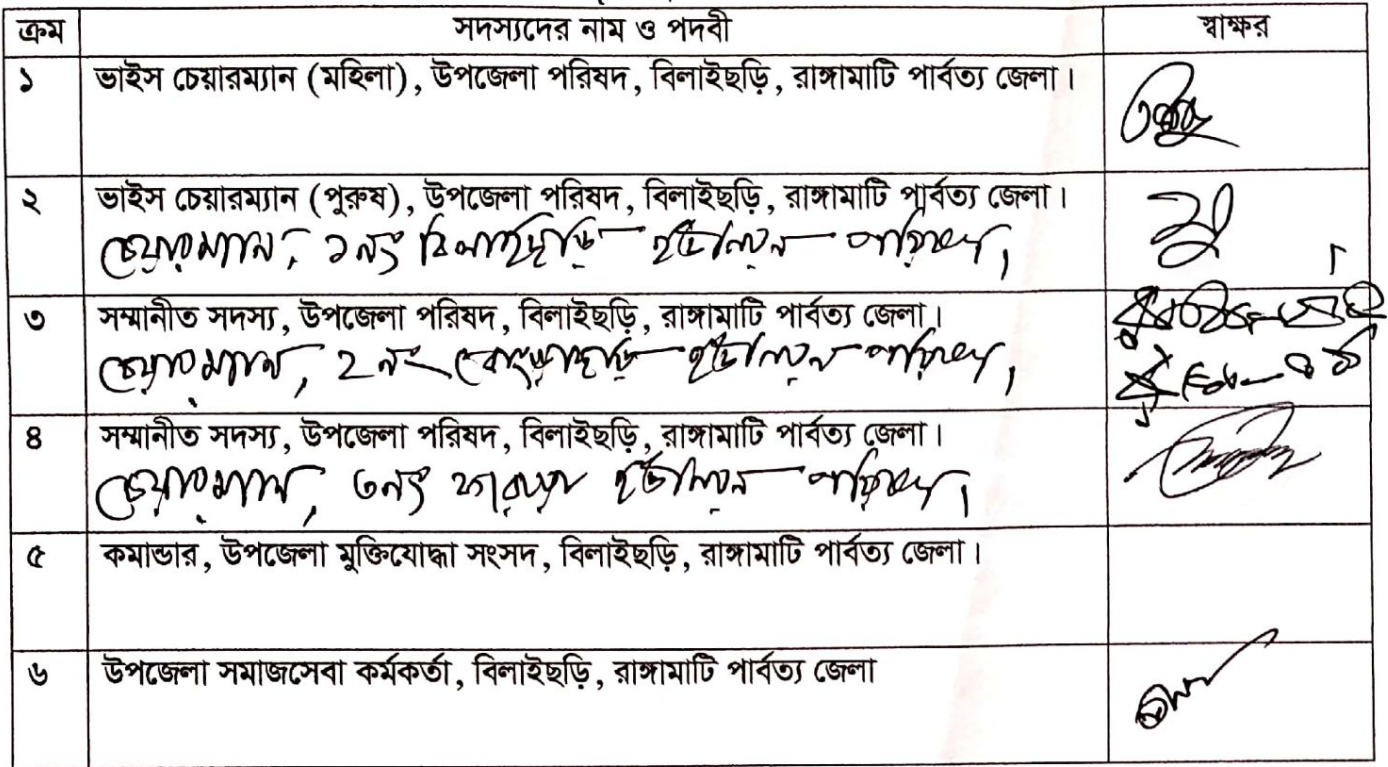 ক্রম সদস্যদের নাম ও পদবী স্বাক্ষর
১ ভাইস চেয়ারম্যান (মহিলা), উপজেলা পরিষদ, বিলাইছড়ি, রাঙ্গামাটি পার্বত্য জেলা।
২ ভাইস চেয়ারম্যান (পুরুষ), উপজেলা পরিষদ, বিলাইছড়ি, রাঙ্গামাটি পার্বত্য জেলা।
চেয়ারম্যান, ১নং বিলাইছড়ি ইউনিয়ন পরিষদ।
৩ সম্মানীত সদস্য, উপজেলা পরিষদ, বিলাইছড়ি, রাঙ্গামাটি পার্বত্য জেলা।
চেয়ারম্যান, ২নং কেংড়াছড়ি ইউনিয়ন পরিষদ।
৪ সম্মানীত সদস্য, উপজেলা পরিষদ, বিলাইছড়ি, রাঙ্গামাটি পার্বত্য জেলা।
চেয়ারম্যান, ৩নং ফারুয়া ইউনিয়ন পরিষদ।
৫ কমান্ডার, উপজেলা মুক্তিযোদ্ধা সংসদ, বিলাইছড়ি, রাঙ্গামাটি পার্বত্য জেলা।
৬ উপজেলা সমাজসেবা কর্মকর্তা, বিলাইছড়ি, রাঙ্গামাটি পার্বত্য জেলা